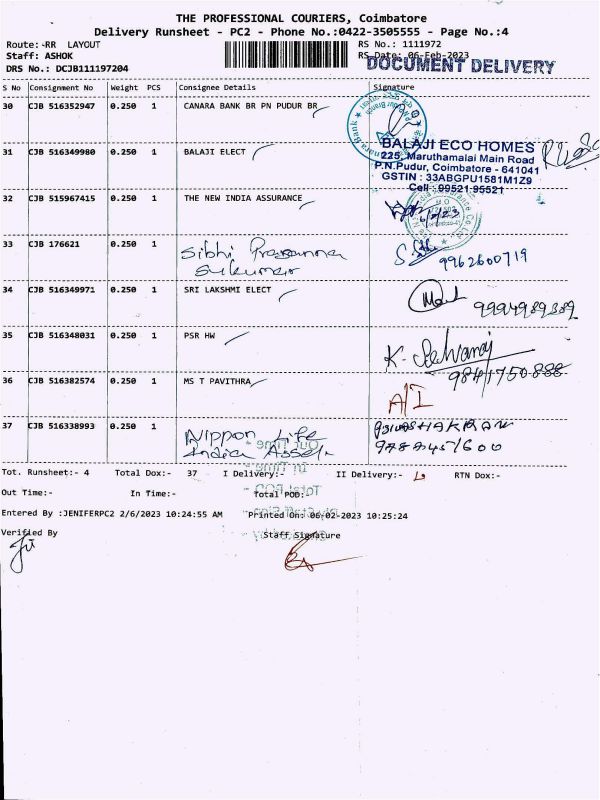 THE PROFESSIONAL COURIERS, Coimbatore
Delivery Runsheet - PC2 - Phone No.:0422-3505555 - Page No.:4
Route:-RR LAYOUT RS No.: 1111972
Staff: ASHOK RS Date: 06-Feb-2023
DOCUMENT DELIVERY
DRS No.: DCJB111197204
S No Consignment No Weight PCS Consignee Details Signature
30 CJB 516352947 0.250 1 CANARA BANK BR PN PUDUR BR
31 CJB 516349980 0.250 1 BALAJI ELECT
BALAJI ECO HOMES
225, Maruthamalai Main Road
P.N.Pudur, Coimbatore - 641041
GSTIN : 33ABGPU1581M1Z9
Cell : 99521 95521
32 CJB 515967415 0.250 1 THE NEW INDIA ASSURANCE
6/2/23
33 CJB 176621 0.250 1 Sibhi Prasanna
Sukumar
9962600719
34 CJB 516349971 0.250 1 SRI LAKSHMI ELECT
9994989389
35 CJB 516348031 0.250 1 PSR HW
K. Selvaraj
9841750888
36 CJB 516382574 0.250 1 MS T PAVITHRA
A/I
37 CJB 516338993 0.250 1 Nippon Life
India Asset
9788451600
Tot. Runsheet:- 4 Total Dox:- 37 I Delivery:- II Delivery:- RTN Dox:-
Out Time:- In Time:- Total POD:
Entered By :JENIFERPC2 2/6/2023 10:24:55 AM Printed On: 06-02-2023 10:25:24
Verified By Staff Signature